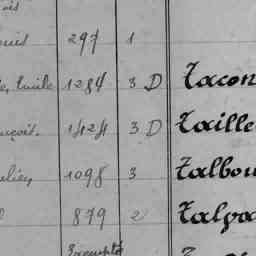 ouis 297 1
Emile 1284 3 D Tacon
nçois. 1424 3 D Taille
ulien 1098 3 Talbou
879 2 Talpa
Exempté